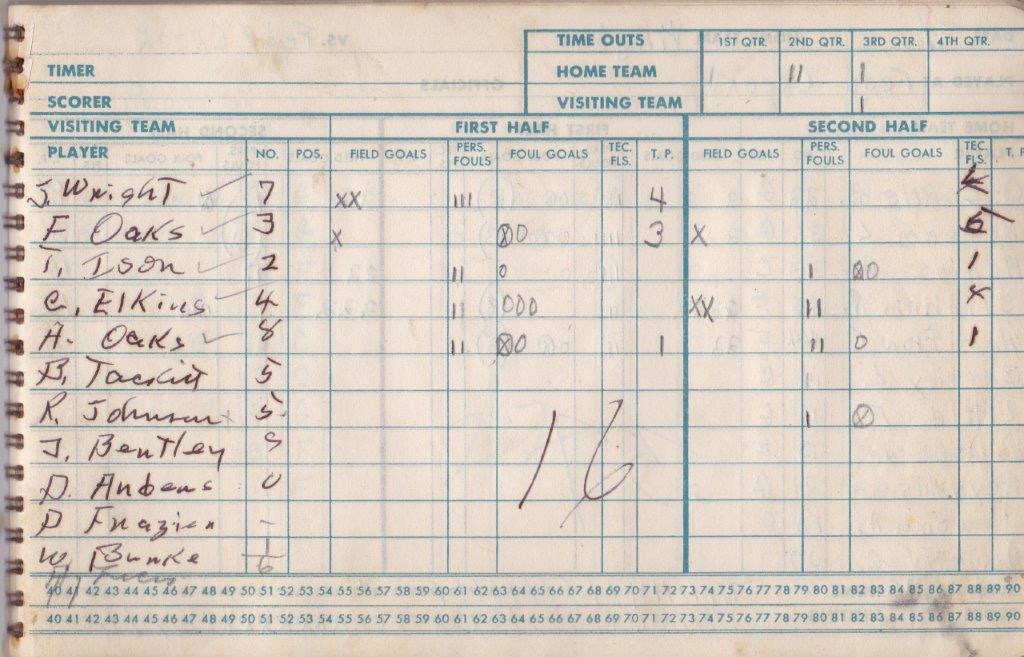 TIME OUTS 1ST QTR. 2ND QTR. 3RD QTR. 4TH QTR.
TIMER HOME TEAM I II I
SCORER VISITING TEAM I
VISITING TEAM FIRST HALF SECOND HALF
PLAYER NO. POS. FIELD GOALS PERS. FOULS FOUL GOALS TEC. FLS. T. P. FIELD GOALS PERS. FOULS FOUL GOALS TEC. FLS. T. P
J. Wright 7 XX III 4
F Oaks 3 X 3 X 5
T, Ison 2 II 0 I 1
G, Elkins 4 II 000 XX II 4
H. Oaks 8 II 1 II 0 1
B, Tackitt 5
R. Johnson 5 I
J, Bentley 9
D. 0
16
D Frazier -
W,
40 41 42 43 44 45 46 47 48 49 50 51 52 53 54 55 56 57 58 59 60 61 62 63 64 65 66 67 68 69 70 71 72 73 74 75 76 77 78 79 80 81 82 83 84 85 86 87 88 89 90
40 41 42 43 44 45 46 47 48 49 50 51 52 53 54 55 56 57 58 59 60 61 62 63 64 65 66 67 68 69 70 71 72 73 74 75 76 77 78 79 80 81 82 83 84 85 86 87 88 89 90